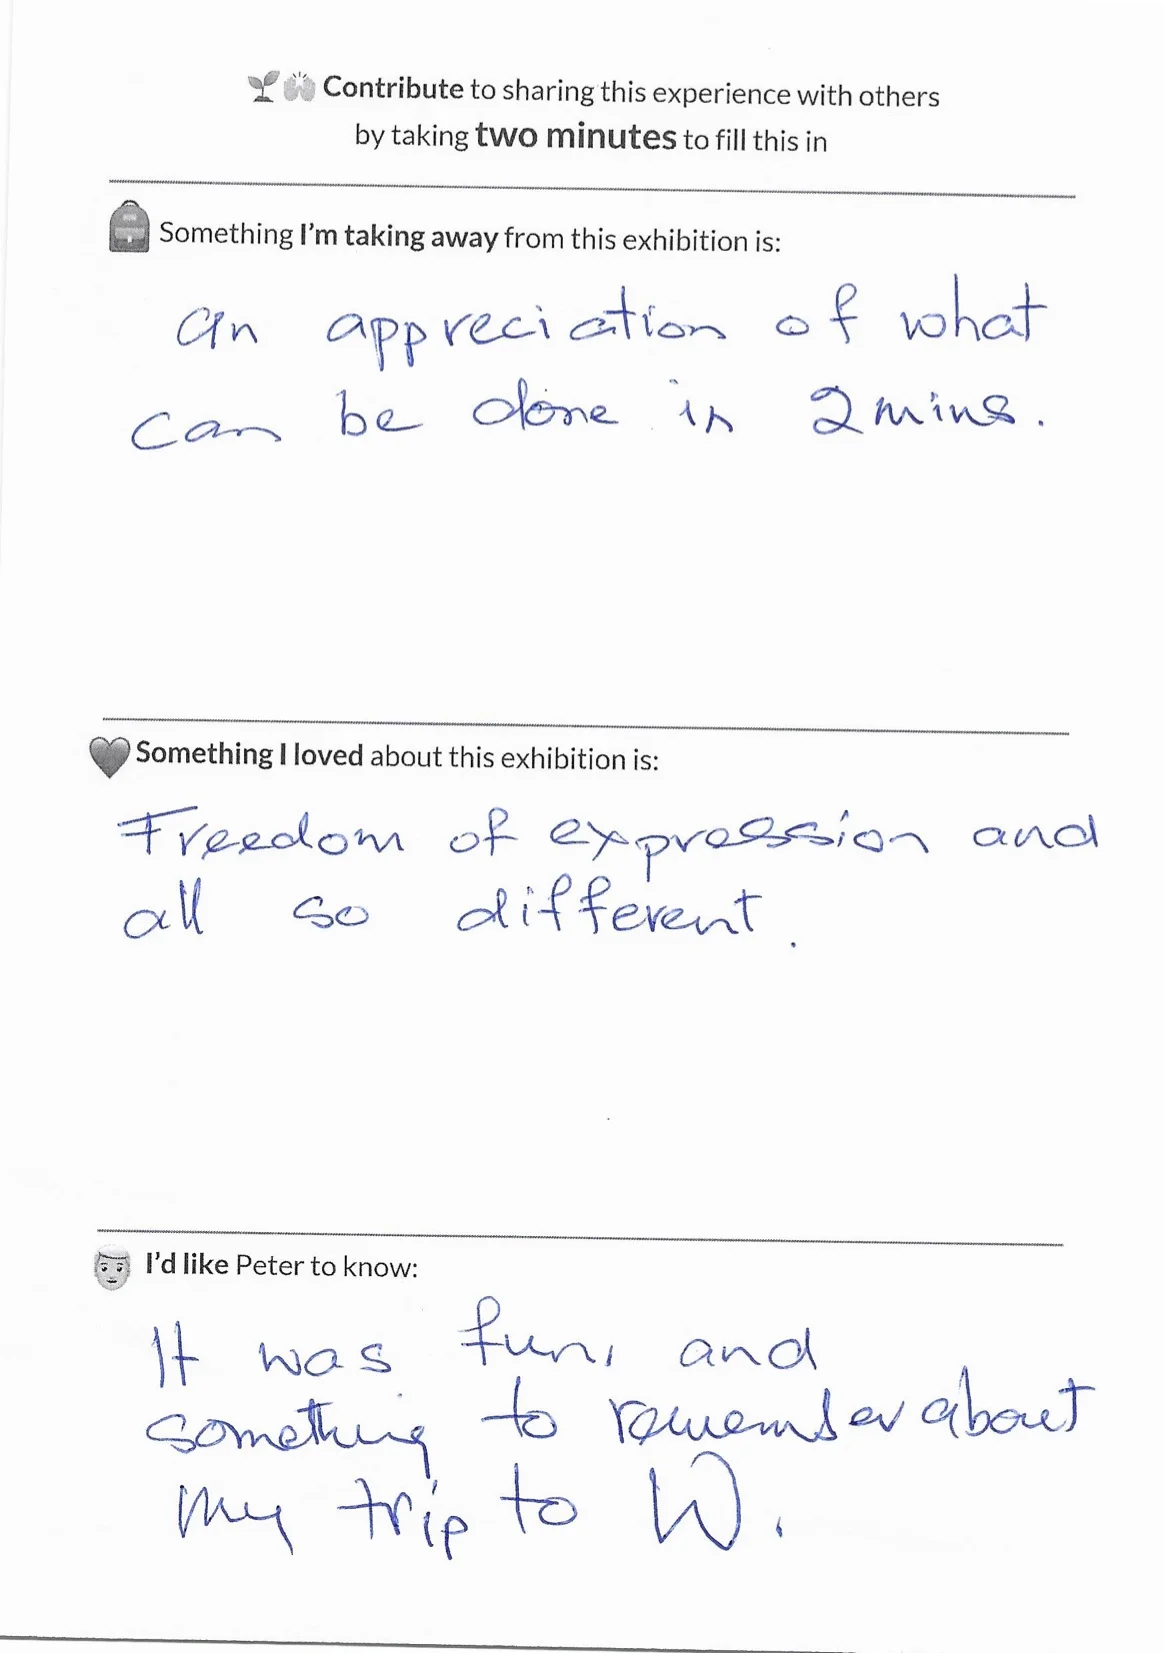 Contribute to sharing this experience with others
by taking two minutes to fill this in
Something I'm taking away from this exhibition is:
an appreciation of what
can be done in 2 mins.
Something I loved about this exhibition is:
Freedom of expression and
all so different.
I'd like Peter to know:
It was fun, and
something to remember about
my trip to W.